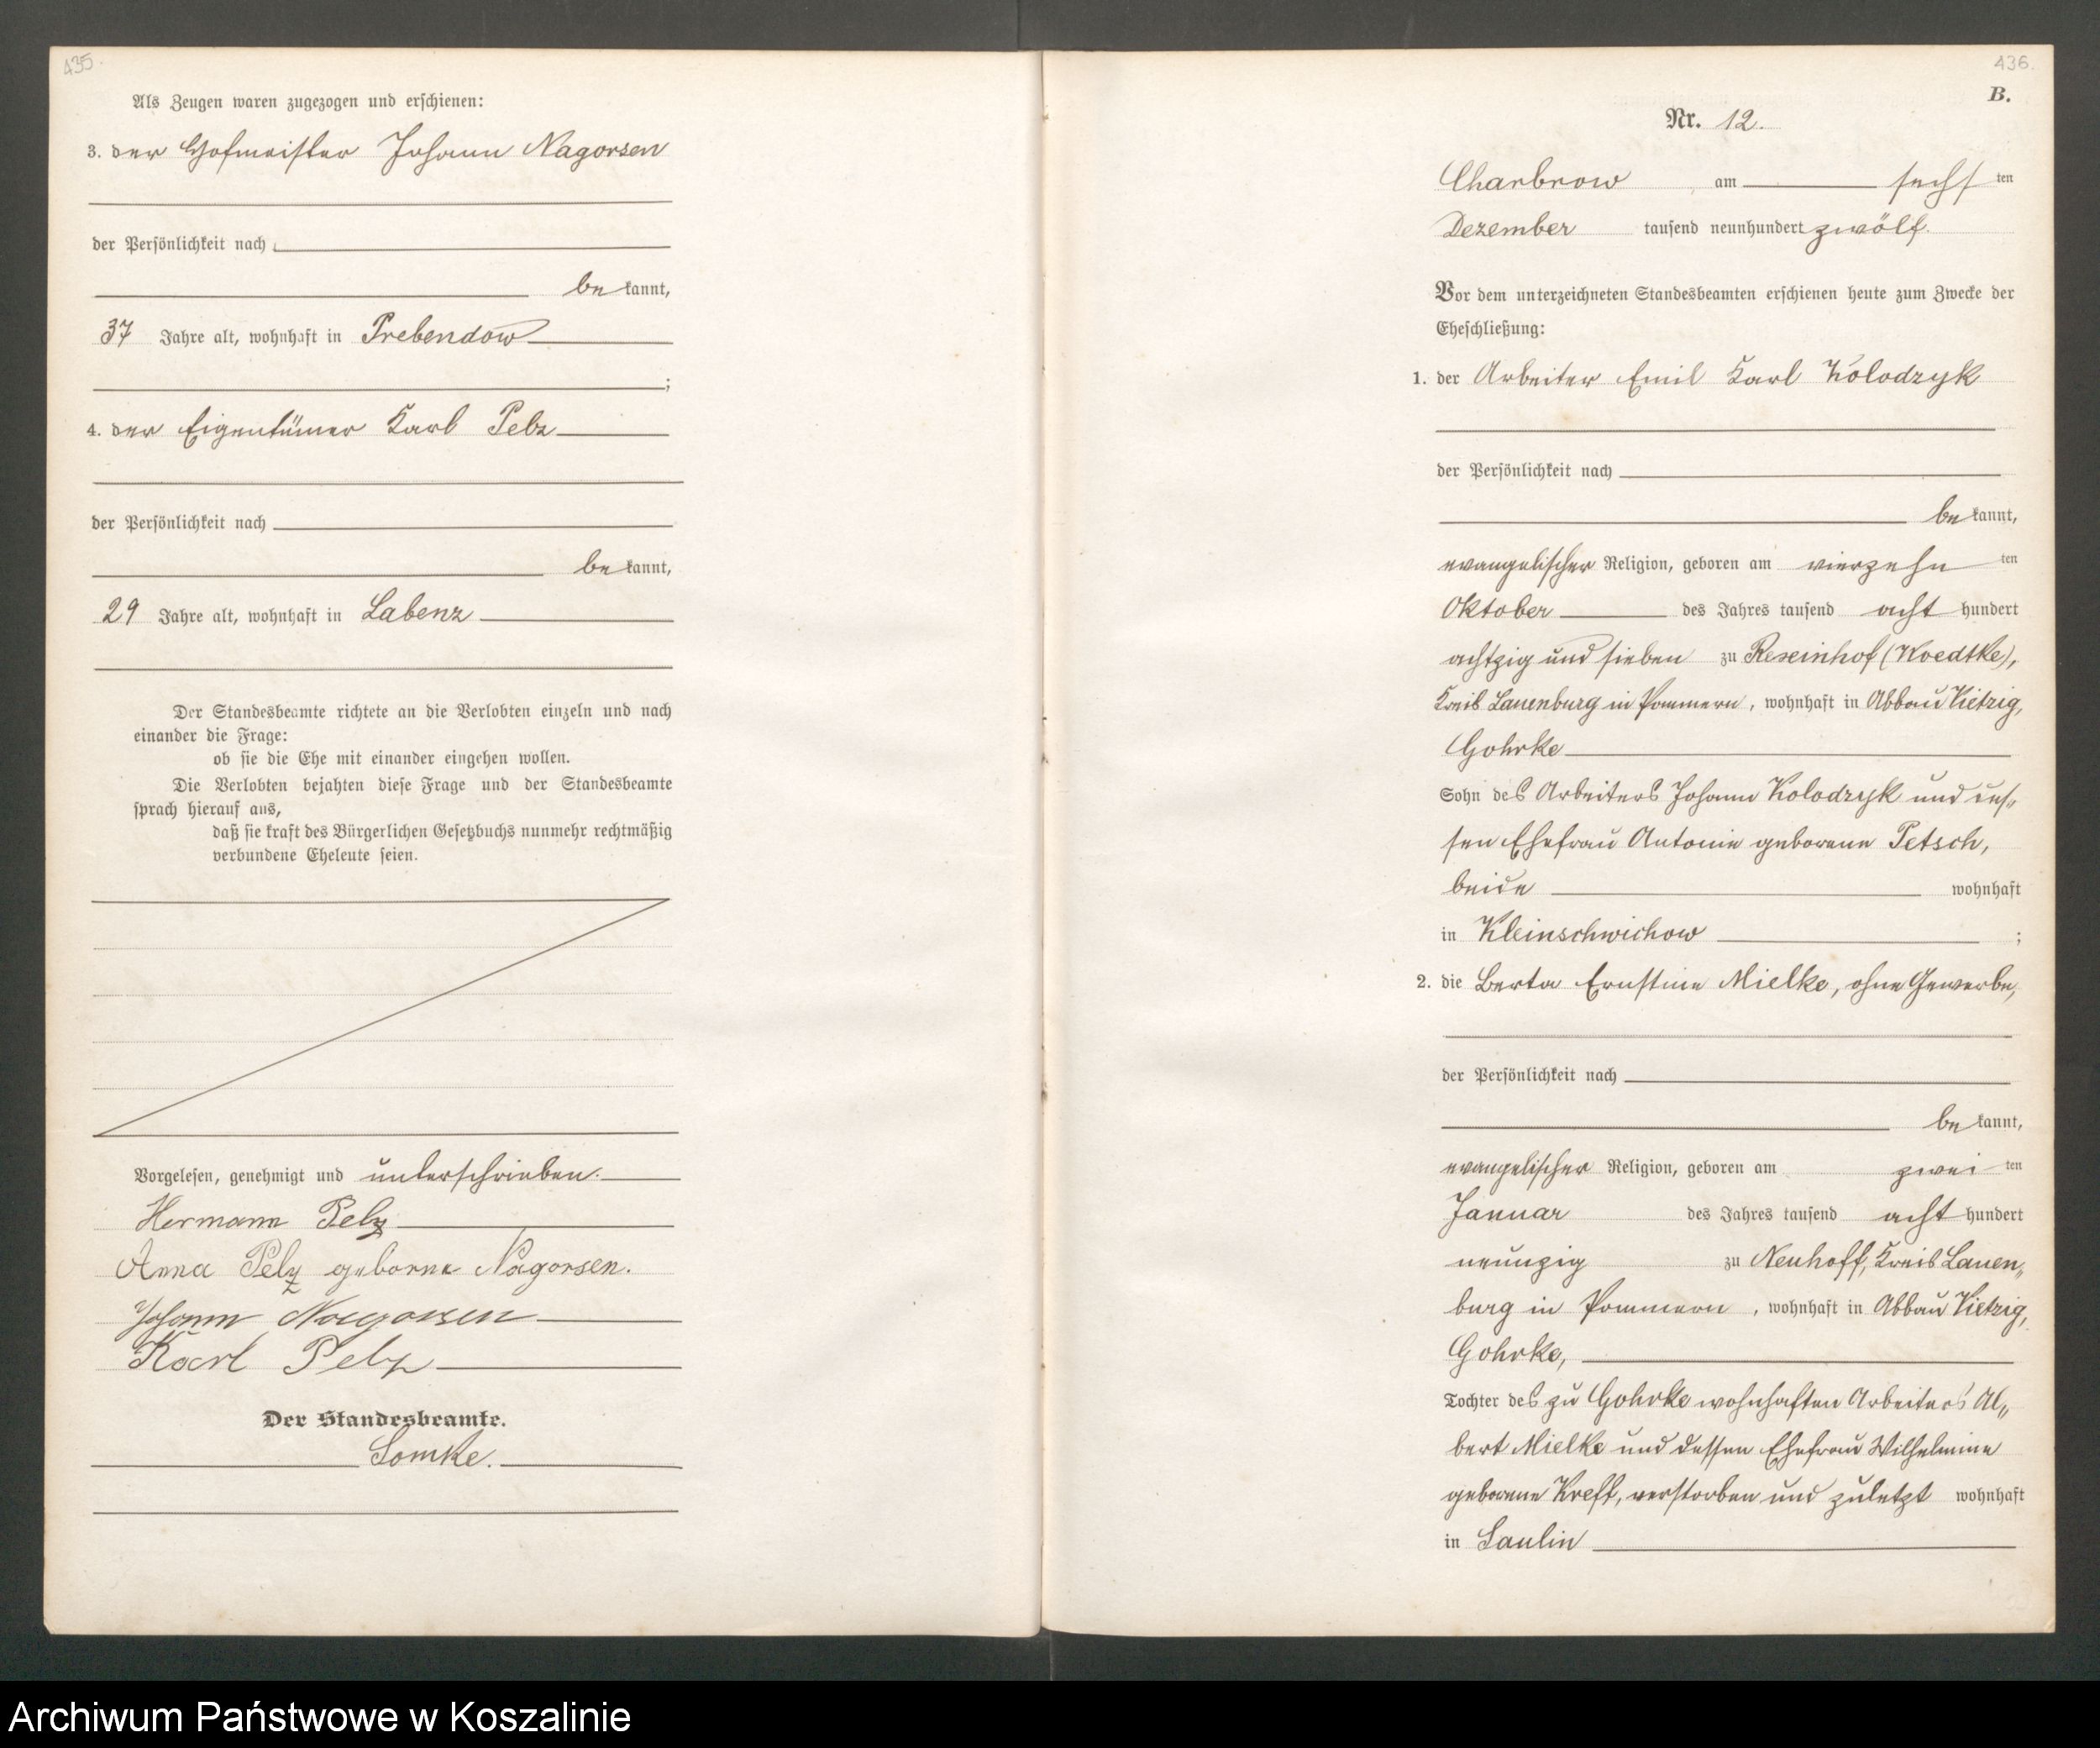 435.
Als Zeugen waren zugezogen und erschienen:
3. der Hofmeister Johann Nagorsen
der Persönlichkeit nach
be kannt,
37 Jahre alt, wohnhaft in Prebendow
;
4. der Eigentümer Karl Pelz
der Persönlichkeit nach
be kannt,
29 Jahre alt, wohnhaft in Labenz
Der Standesbeamte richtete an die Verlobten einzeln und nach
einander die Frage:
ob sie die Ehe mit einander eingehen wollen.
Die Verlobten bejahten diese Frage und der Standesbeamte
sprach hierauf aus,
daß sie kraft des Bürgerlichen Gesetzbuchs nunmehr rechtmäßig
verbundene Eheleute seien.
Vorgelesen, genehmigt und unterschrieben.
Hermann Pelz
Anna Pelz geborne Nagorsen.
Johann Nagorsen
Karl Pelz
Der Standesbeamte.
Somke.
436.
B.
Nr. 12.
Charbrow am sechs ten
Dezember tausend neunhundert zwölf.
Vor dem unterzeichneten Standesbeamten erschienen heute zum Zwecke der
Eheschließung:
1. der Arbeiter Emil Karl Kolodzyk
der Persönlichkeit nach
be kannt,
evangelischer Religion, geboren am vierzehn ten
Oktober des Jahres tausend acht hundert
achtzig und sieben zu Rexinhof (Koedtke),
Kreis Lauenburg in Pommern, wohnhaft in Abbau Vietzig,
Gohrke
Sohn des Arbeiters Johann Kolodzyk und des„
sen Ehefrau Antonie geborene Petsch,
beide wohnhaft
in Kleinschwichow ;
2. die Berta Ernstine Mielke, ohne Gewerbe,
der Persönlichkeit nach
be kannt,
evangelischer Religion, geboren am zwei ten
Januar des Jahres tausend acht hundert
neunzig zu Neuhoff, Kreis Lauen„
burg in Pommern, wohnhaft in Abbau Vietzig,
Gohrke,
Tochter des zu Gohrke wohnhaften Arbeiters Al„
bert Mielke und dessen Ehefrau Wilhelmine
geborene Kreft, verstorben und zuletzt wohnhaft
in Saulin
Archiwum Państwowe w Koszalinie